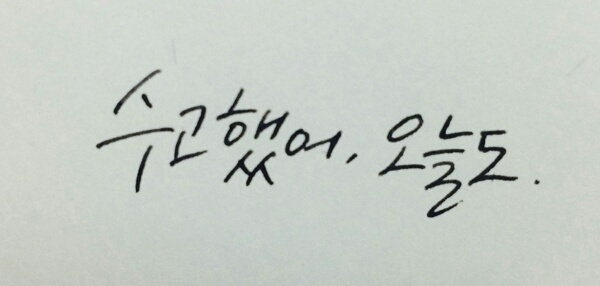 수고했어, 오늘도.